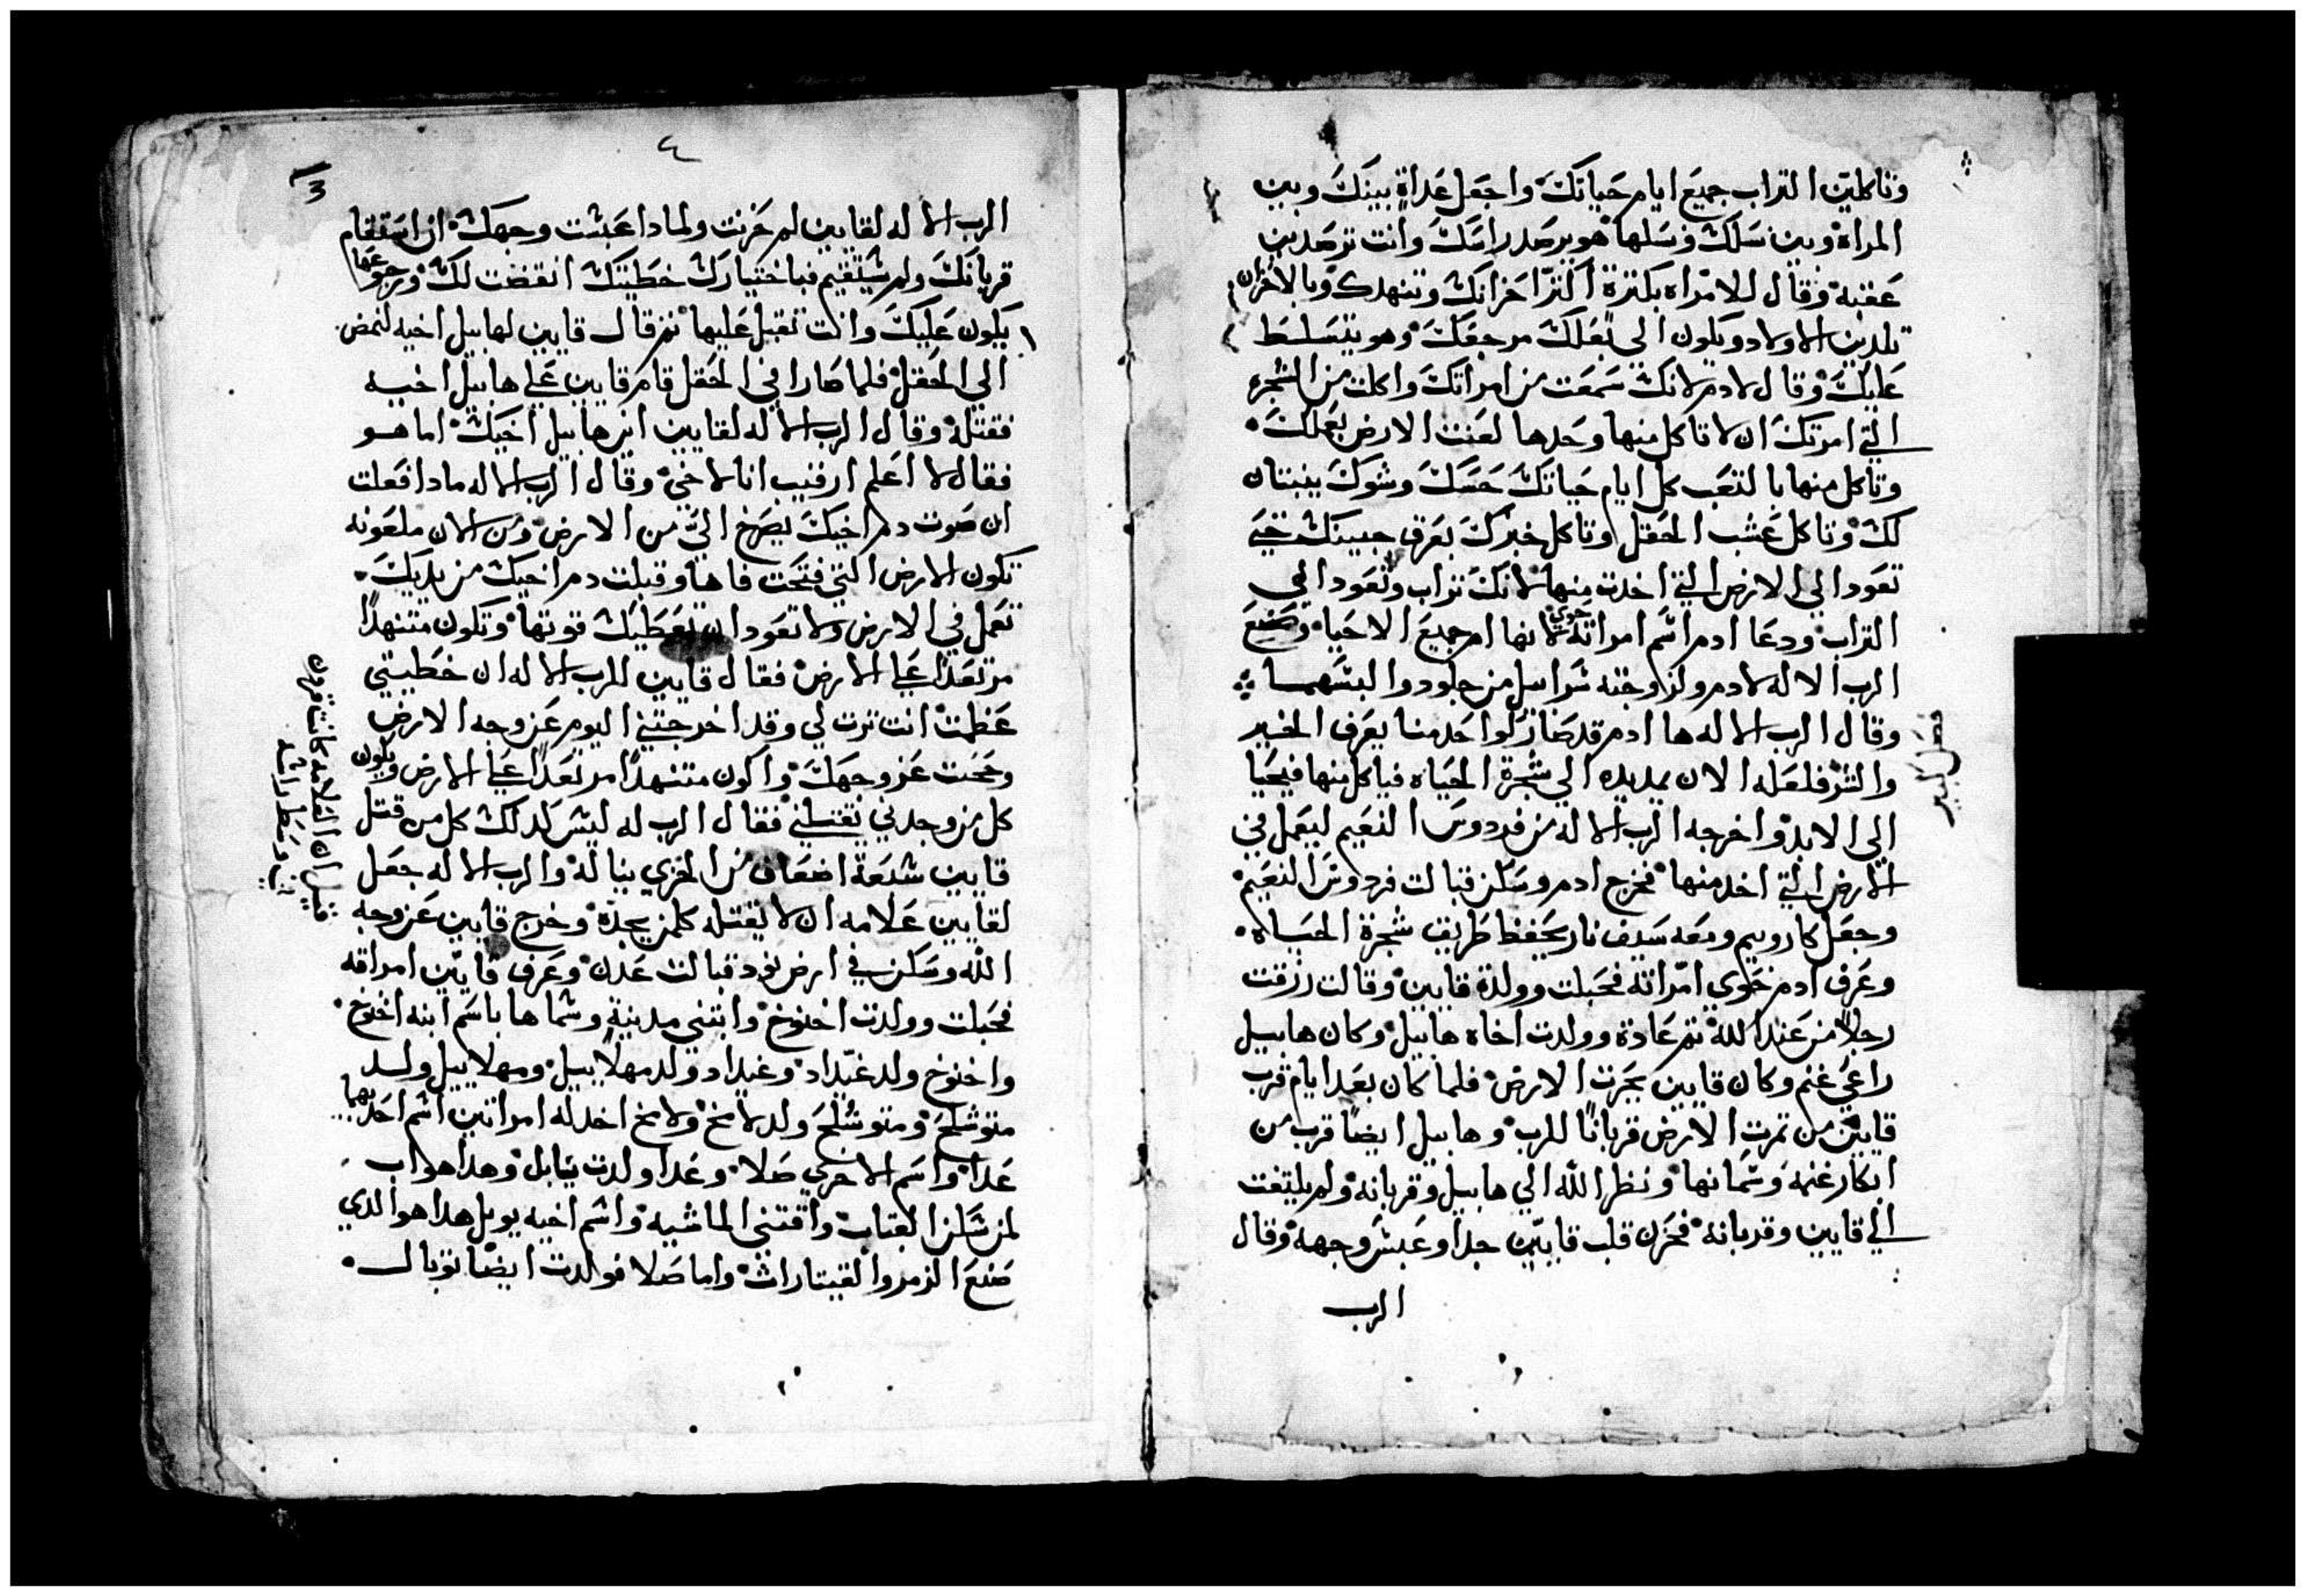 وتاكلين التراب جميع ايام حياتك واجعل عداة بينك وبين
المراة وبين نسلك ونسلها هو يرصد راسك وانت ترصدين
عقبه وقال للامراه بكترة اكتر احزانك وتنهدك وبالاحزان
تلدين الاولاد ويكون الي بعلك مرجعك وهو يتسلط
عليك وقال لادم لانك سمعت من امراتك واكلت من الشجره
التي امرتك ان لا تاكل منها وحدها لعنت الارض بعملك
وتاكل منها بالتعب كل ايام حياتك حسك وشوك ينبتان
لك وتاكل عشب الحقل وتاكل خبزك بعرق جبينك حتي
تعود الي الارض التي اخدت منها لانك تراب وتعود الي
التراب ودعا ادم اسم امراته حوي لانها ام جميع الاحيا وصنع
الرب الاله لادم ولزوجته سرابيل من جلود والبسهما
وقال الرب الاله ها ادم قد صار كواحد منا يعرف الخير
والشر فلعله الان يمد يده الي شجرة الحياه فياكل منها فيحيا
الي الابد واخرجه الرب الاله من فردوس النعيم ليعمل في
الارض التي اخد منها فخرج ادم وسكن قبالت فردوس النعيم
وجعل كاروبيم ومعه سيف نار يحفظ طريق شجرة الحياه
وعرف ادم حوي امراته فحبلت وولدة قايين وقالت رزقت
رجلا من عند الله تم عادة وولدت اخاه هابيل وكان هابيل
راعي غنم وكان قايين يحرت الارض فلما كان بعد ايام قرب
قايين من تمرت الارض قربانا للرب وهابيل ايضا قرب من
ابكار غنمه وسمانها ونظر الله الي هابيل وقربانه ولم يلتفت
الي قايين وقربانه فحزن قلب قايين جدا وعبس وجهه وقال
الرب
فصل كبير
٤
3
الرب الاله لقايين لم حزنت ولمادا عبست وجهك ان استقام
قربانك ولم يستقيم فباختيارك خطيتك انقضت لك ورجوعها
يكون عليك وانت تقبل عليها تم قال قايين لهابيل اخيه لنمض
الي الحقل فلما صارا في الحقل قام قايين علي هابيل اخيه
فقتله وقال الرب الاله لقايين اين هابيل اخيك اما هو
فقال لا اعلم ارقيب انا لاخي وقال الرب الاله مادا فعلت
ان صوت دم اخيك يصرخ الي من الارض ومن الان ملعونه
تكون الارض التي فتحت فاها وقبلت دم اخيك من يديك
تعمل في الارض ولا تعود ان تعطيك قوتها وتكون متنهدا
مرتعدا علي الارض فقال قايين للرب الاله ان خطيتي
عظمت انت ترت لي وقد اخرجتني اليوم عن وجه الارض
ومحت عن وجهك واكون متنهدا مرتعدا علي الارض ويكون
كل من وجدني يقتلني فقال الرب له ليس كدلك كل من قتل
قايين سبعة اضعاف من الخزي يناله والرب الاله جعل
لقايين علامه ان لا يقتله كلمن يجده وخرج قايين عن وجه
الله وسكن في ارض نود قبالت عدن وعرف قايين امراته
فحبلت وولدت اخنوخ وابتني مدينة وسماها باسم ابنه اخنوخ
واخنوخ ولد غيداد وغيداد ولد مهلاييل ومهلاييل ولد
متوشلح ومتوشلح ولد لامخ ولامخ اخد له امراتين اسم احديهما
عدا واسم الاخري صلا وعدا ولدت يابل وهدا هو اب
لمن سكن القباب واقتني الماشيه واسم اخيه يوبل هدا هو الدي
صنع المزمر والقيتارات واما صلا فولدت ايضا توبال
قيل ان العلامه كانت قرون
في وسط راسه